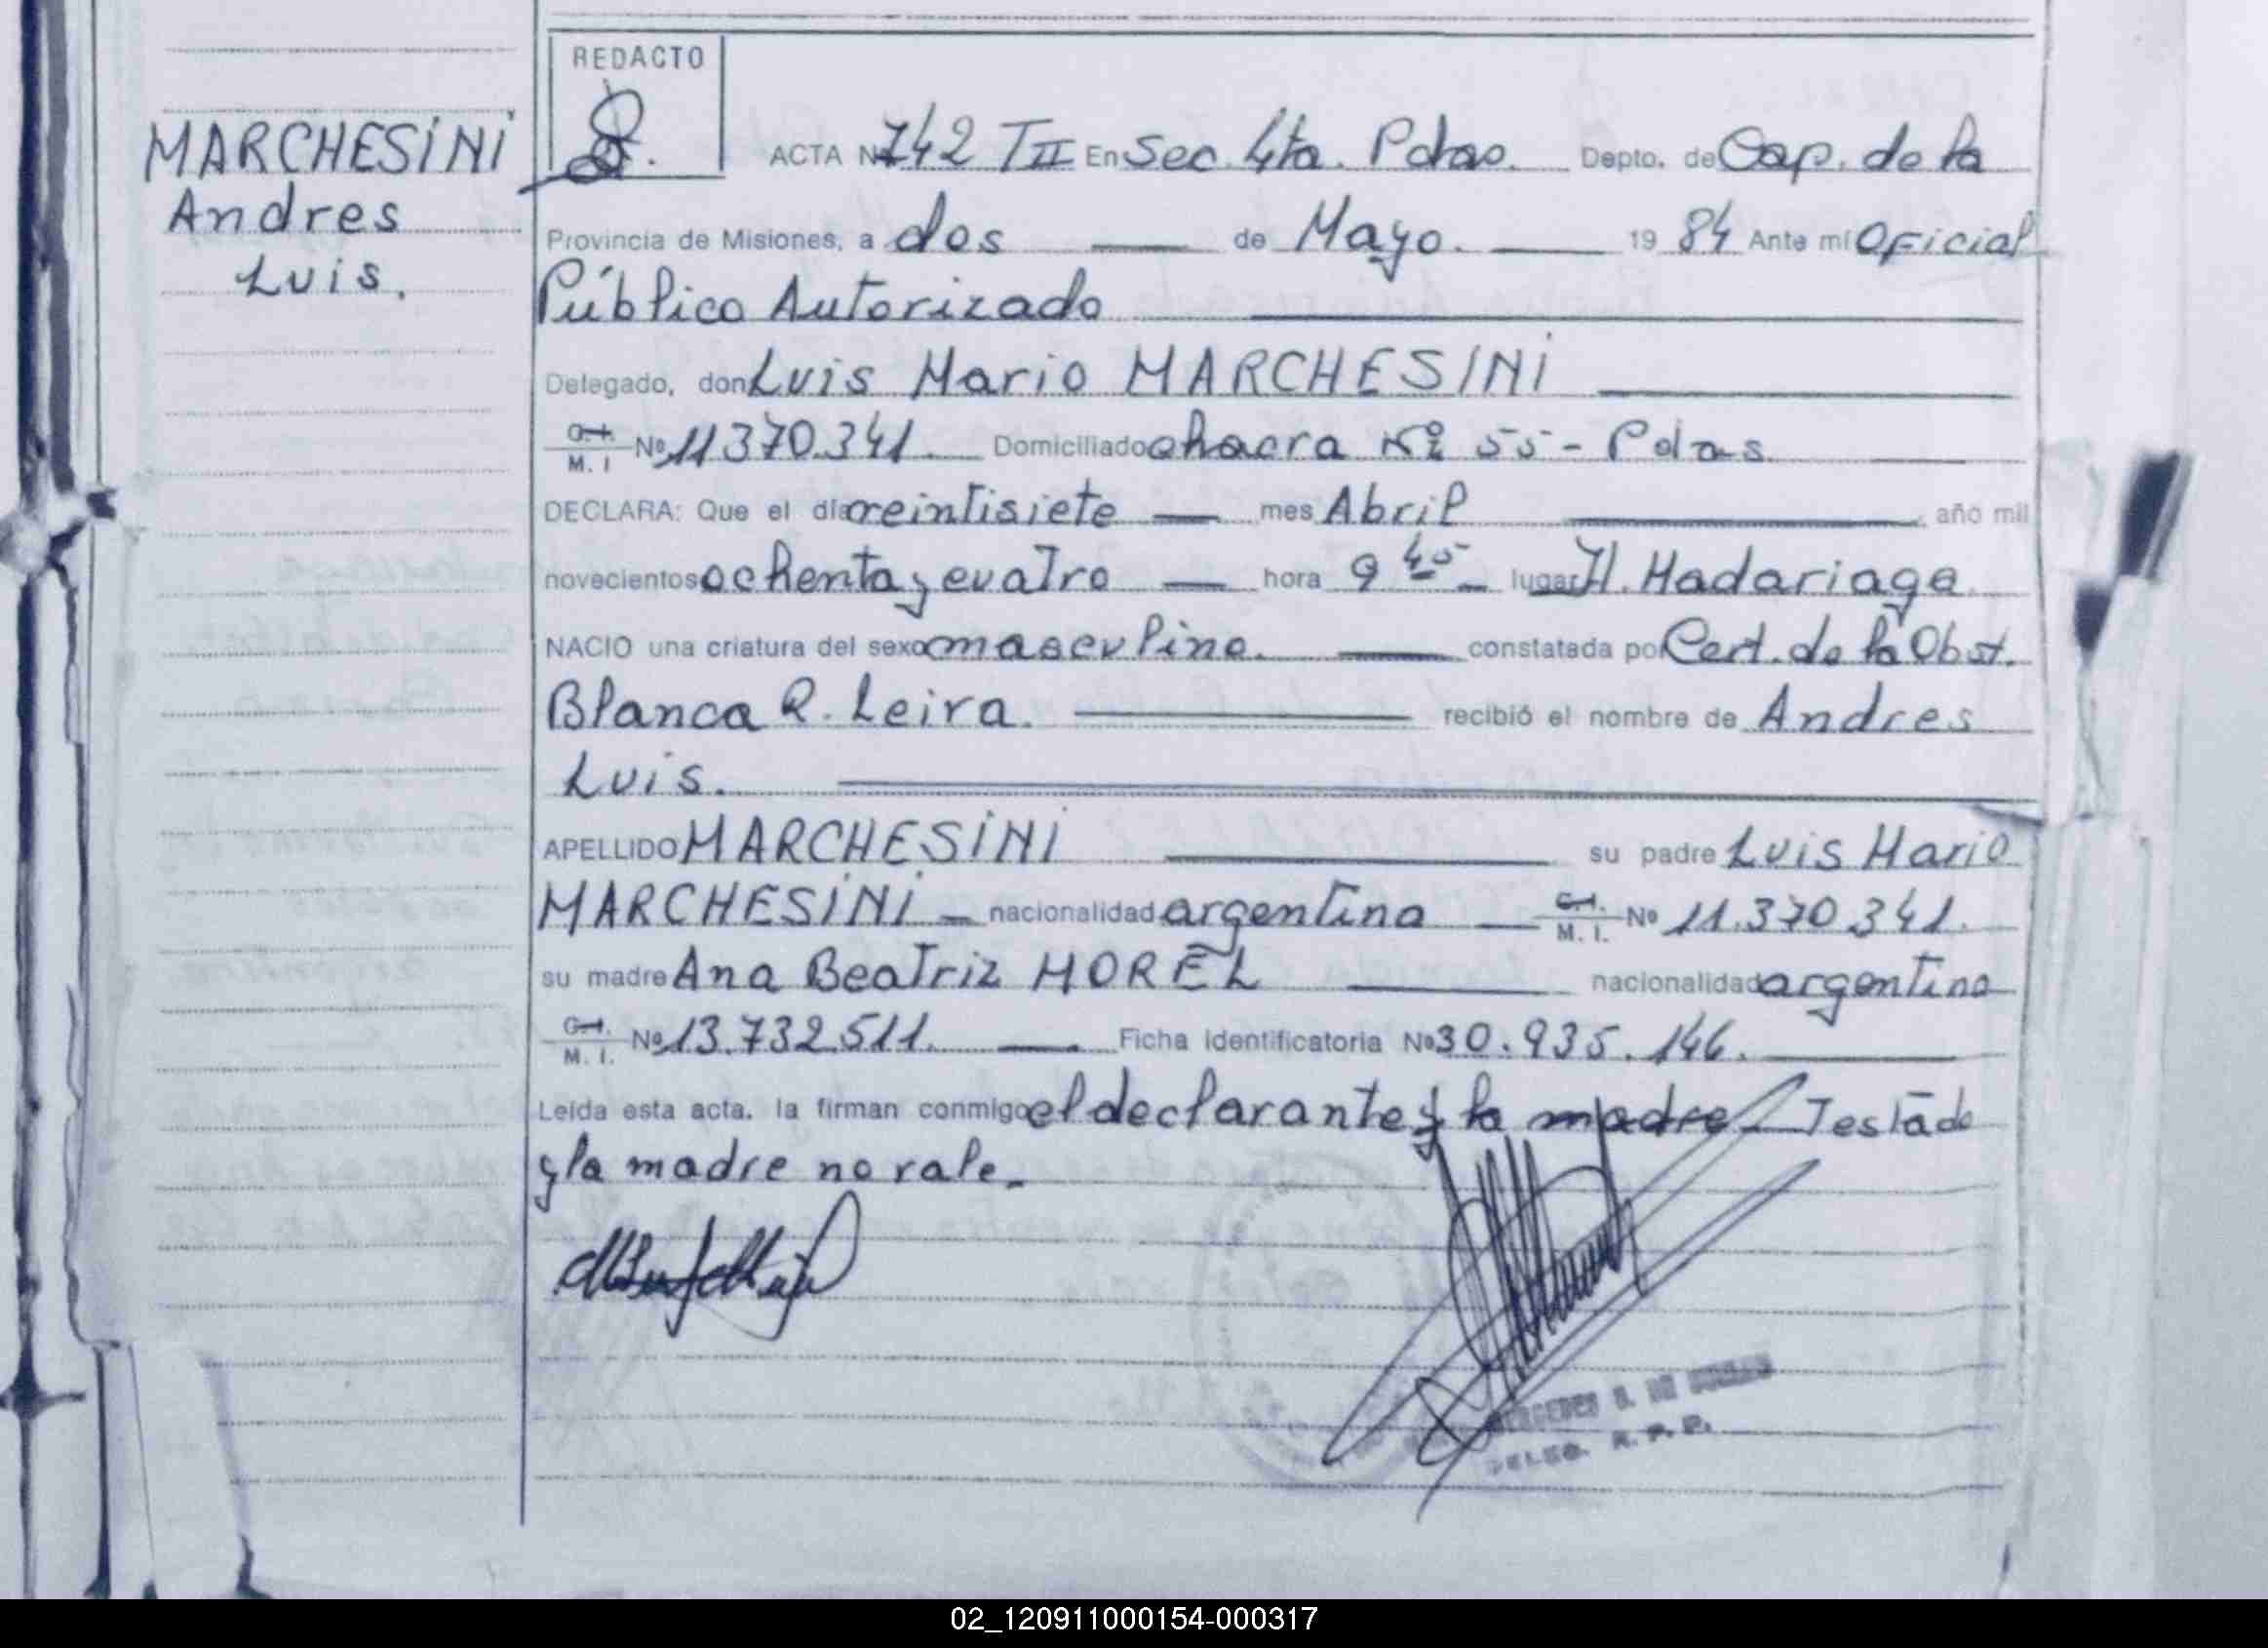 MARCHESINI
Andres
Luis.
REDACTO
ACTA Nº 742 T II En Sec. 4ta. Pdas. Depto. de Cap. de la
Provincia de Misiones, a dos de Mayo. 19 84 Ante mí Oficial
Público Autorizado
Delegado, don Luis Mario MARCHESINI
C.I. M.I Nº 11370.341. Domiciliado chacra Nº 55 - Pdas
DECLARA: Que el día veintisiete mes Abril, año mil
novecientos ochenta y cuatro hora 9 45 lugar H. Madariaga.
NACIO una criatura del sexo masculino. constatada por Cert. de la Obst.
Blanca R. Leira. recibió el nombre de Andres
Luis.
APELLIDO MARCHESINI su padre Luis Mario
MARCHESINI nacionalidad argentina C.I. M.I. Nº 11.370.341.
su madre Ana Beatriz MOREL nacionalidad argentina
C.I. M.I. Nº 13.732.511. Ficha Identificatoria Nº 30.935.146.
Leída esta acta, la firman conmigo el declarante y la madre. Testado
y la madre no vale.
DELEG. R. P. P.
02_120911000154-000317